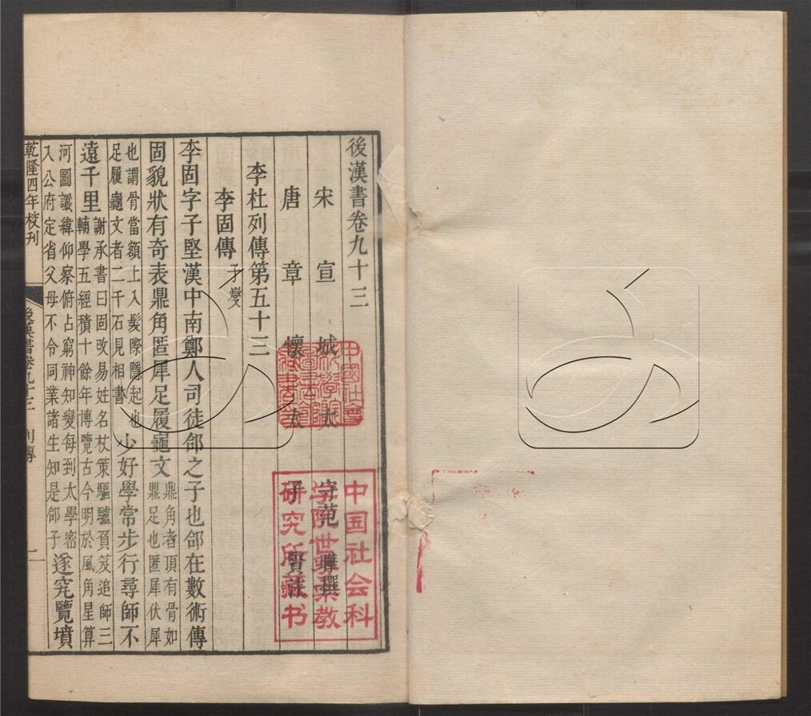 後漢書卷九十三
宋宣城太守范曄撰
唐章懷太子賢注
李杜列傳第五十三
李固傳子燮
李固字子堅漢中南鄭人司徒郃之子也郃在數術傳
固貌狀有奇表鼎角匿犀足履龜文鼎角者頂有骨如
鼎足也匿犀伏犀
也謂骨當額上入髮際隱起也
足履龜文者二千石見相書
少好學常步行尋師不
遠千里謝承書曰固改易姓名杖策驅驢負笈追師三
輔學五經積十餘年博覽古今明於風角星算
河圖讖緯仰察俯占窮神知變每到太學密
入公府定省父母不令同業諸生知是郃子
遂究覽墳
乾隆四年校刊
後漢書卷九十三 列傳
中国社会科
学院世界宗教
研究所藏书